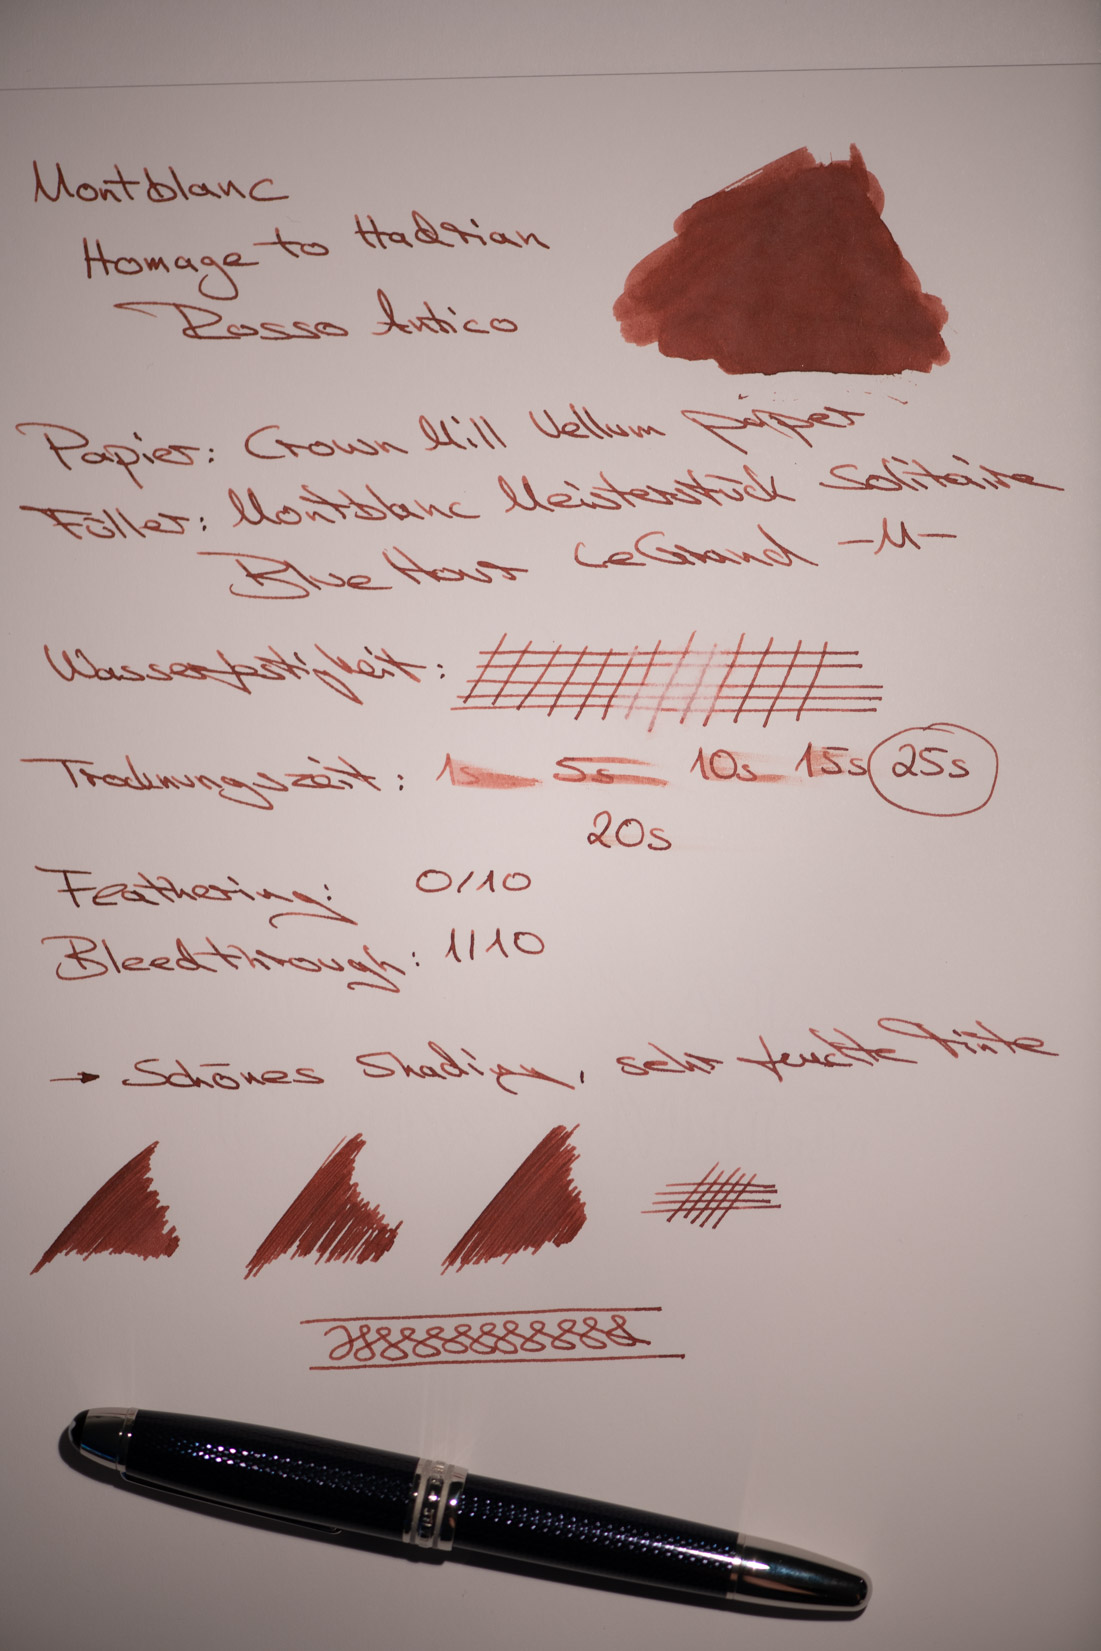 Montblanc
Homage to Hadrian
Rosso Antico
Papier: Crown Mill Vellum paper
Füller: Montblanc Meisterstück Solitaire
Blue Hour LeGrand -M-
Wasserfestigkeit:
Trocknungszeit: 1s 5s 10s 15s 25s
20s
Feathering: 0/10
Bleedthrough: 1/10
→ Schönes Shading, sehr feuchte Tinte